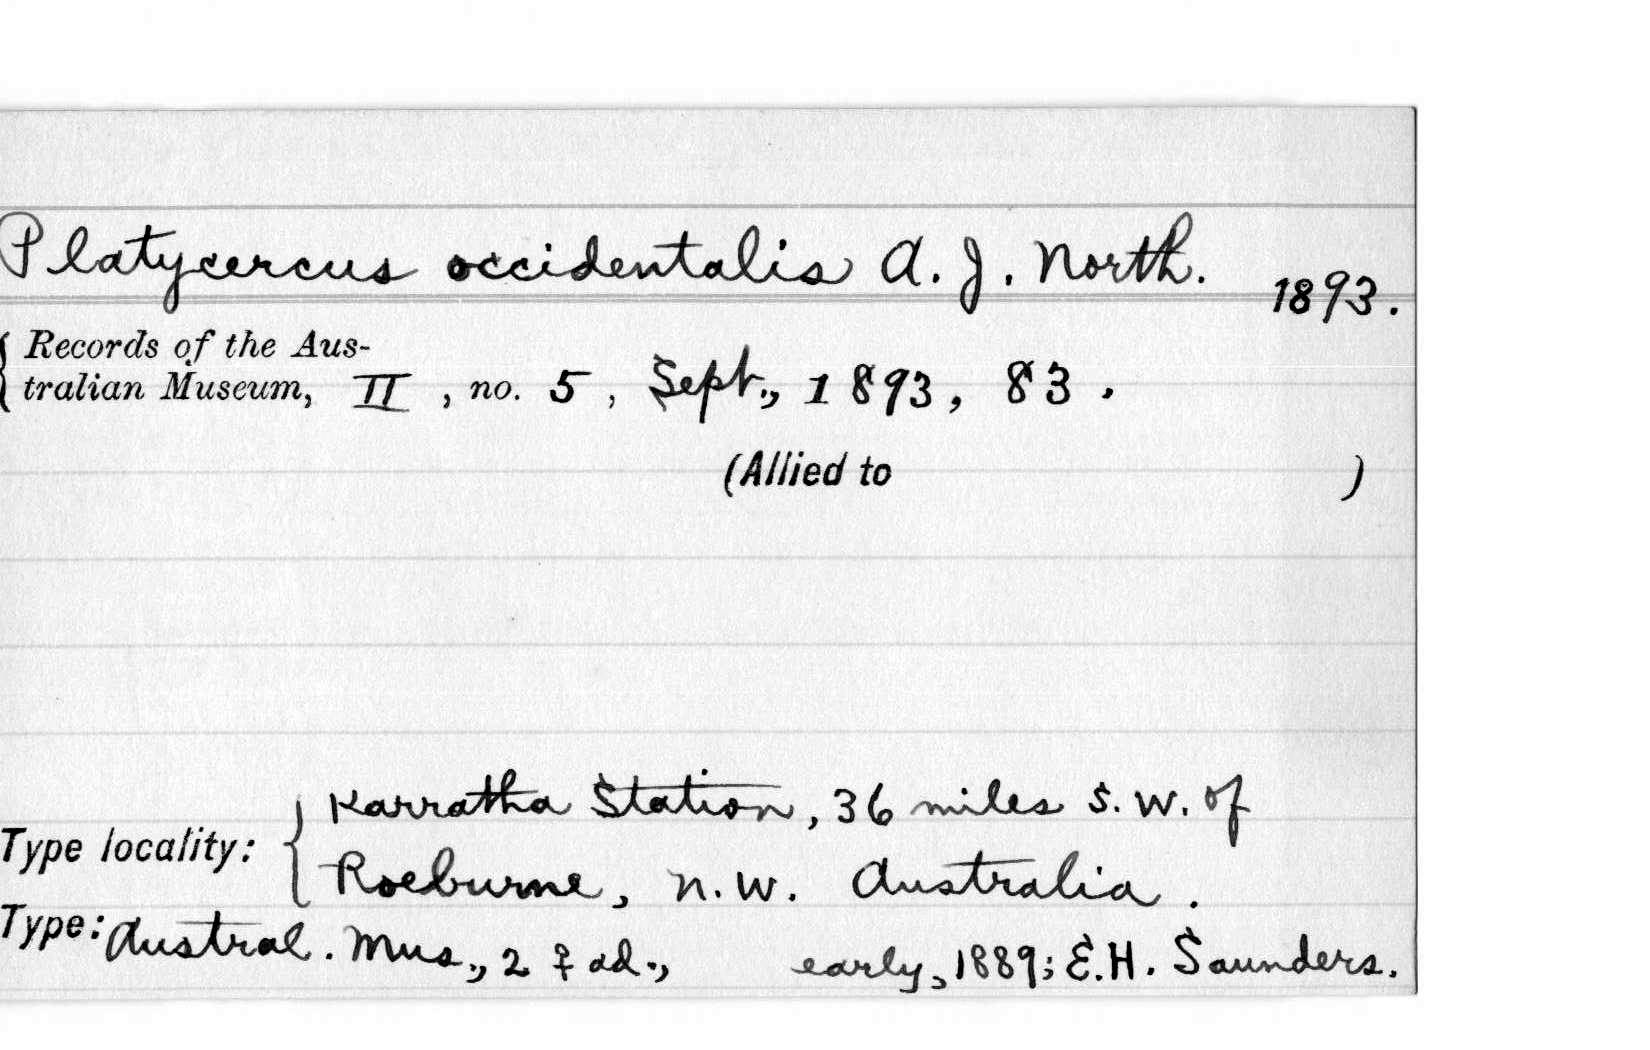 Platycercus occidentalis A. J. North. 1893.
Records of the Aus-
tralian Museum, II, no. 5, Sept., 1893, 83.
(Allied to )
Karratha Station, 36 miles S. W. of
Type locality:
Roeburne, N. W. Australia.
Type: Austral. Mus., 2 ♀ ad., early, 1889; E. H. Saunders.